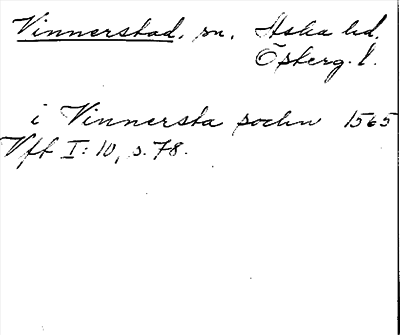 Vinnerstad, sn. Aska hd.
Österg. l.
i Vinnersta sochn 1565
Vfl I:10, s. 78.